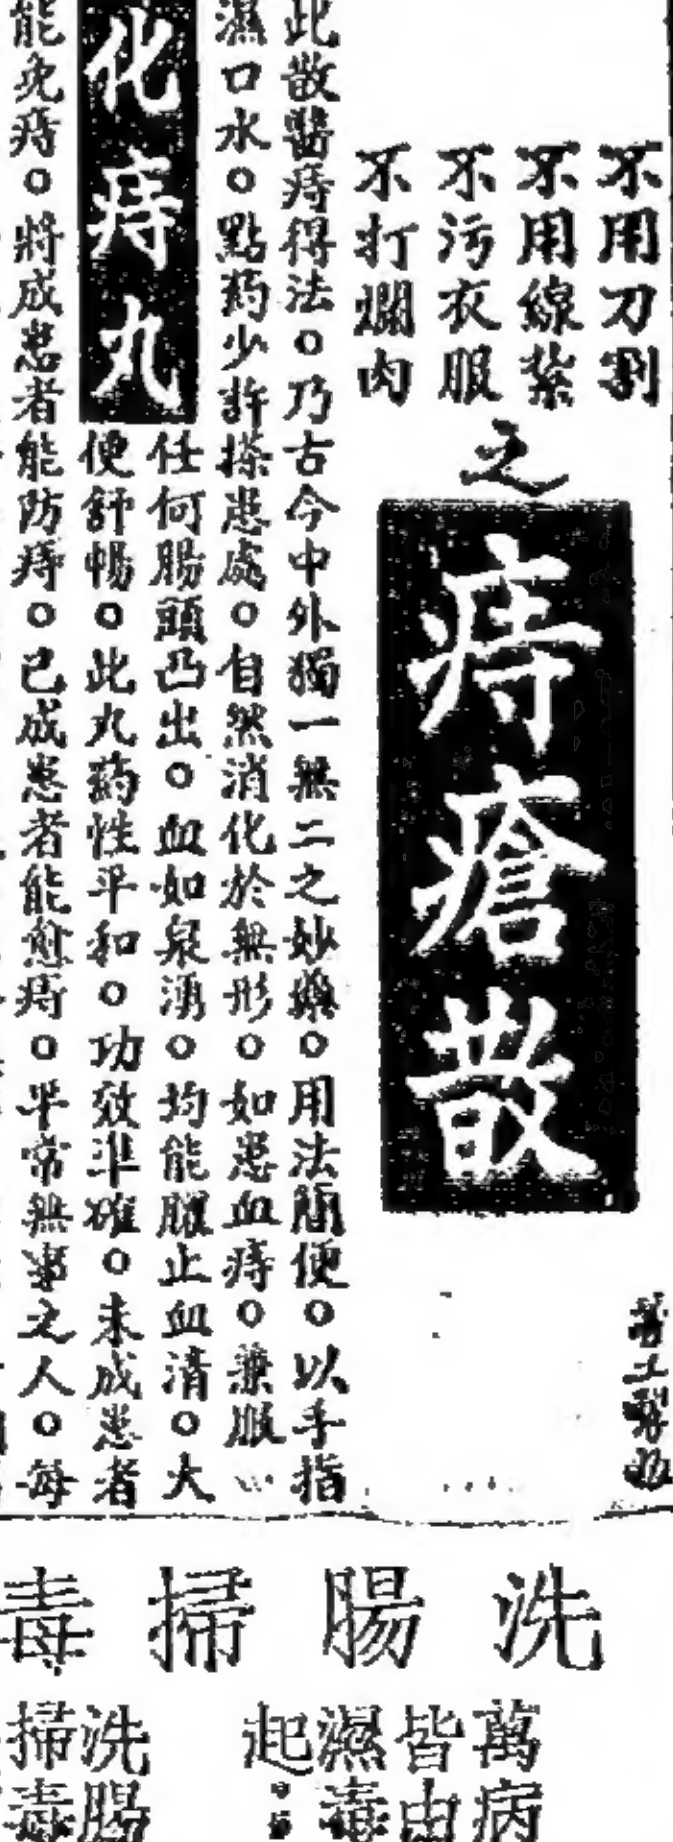 不用刀割
不用線紮
不污衣服
不打爛肉
之
痔瘡散
此散醫痔得法。乃古今中外獨一無二之妙藥。用法簡便。以手指
濕口水。點药少許搽患處。自然消化於無形。如患血痔。兼服
化痔丸
任何腸頭凸出。血如泉湧。均能腥止血清。大
便舒暢。此丸药性平和。功效準確。未成患者
能免痔。將成患者能防痔。已成患者能愈痔。平常無事之人。每
洗腸掃毒
萬病
皆由
濕毒
起：
洗腸
掃毒